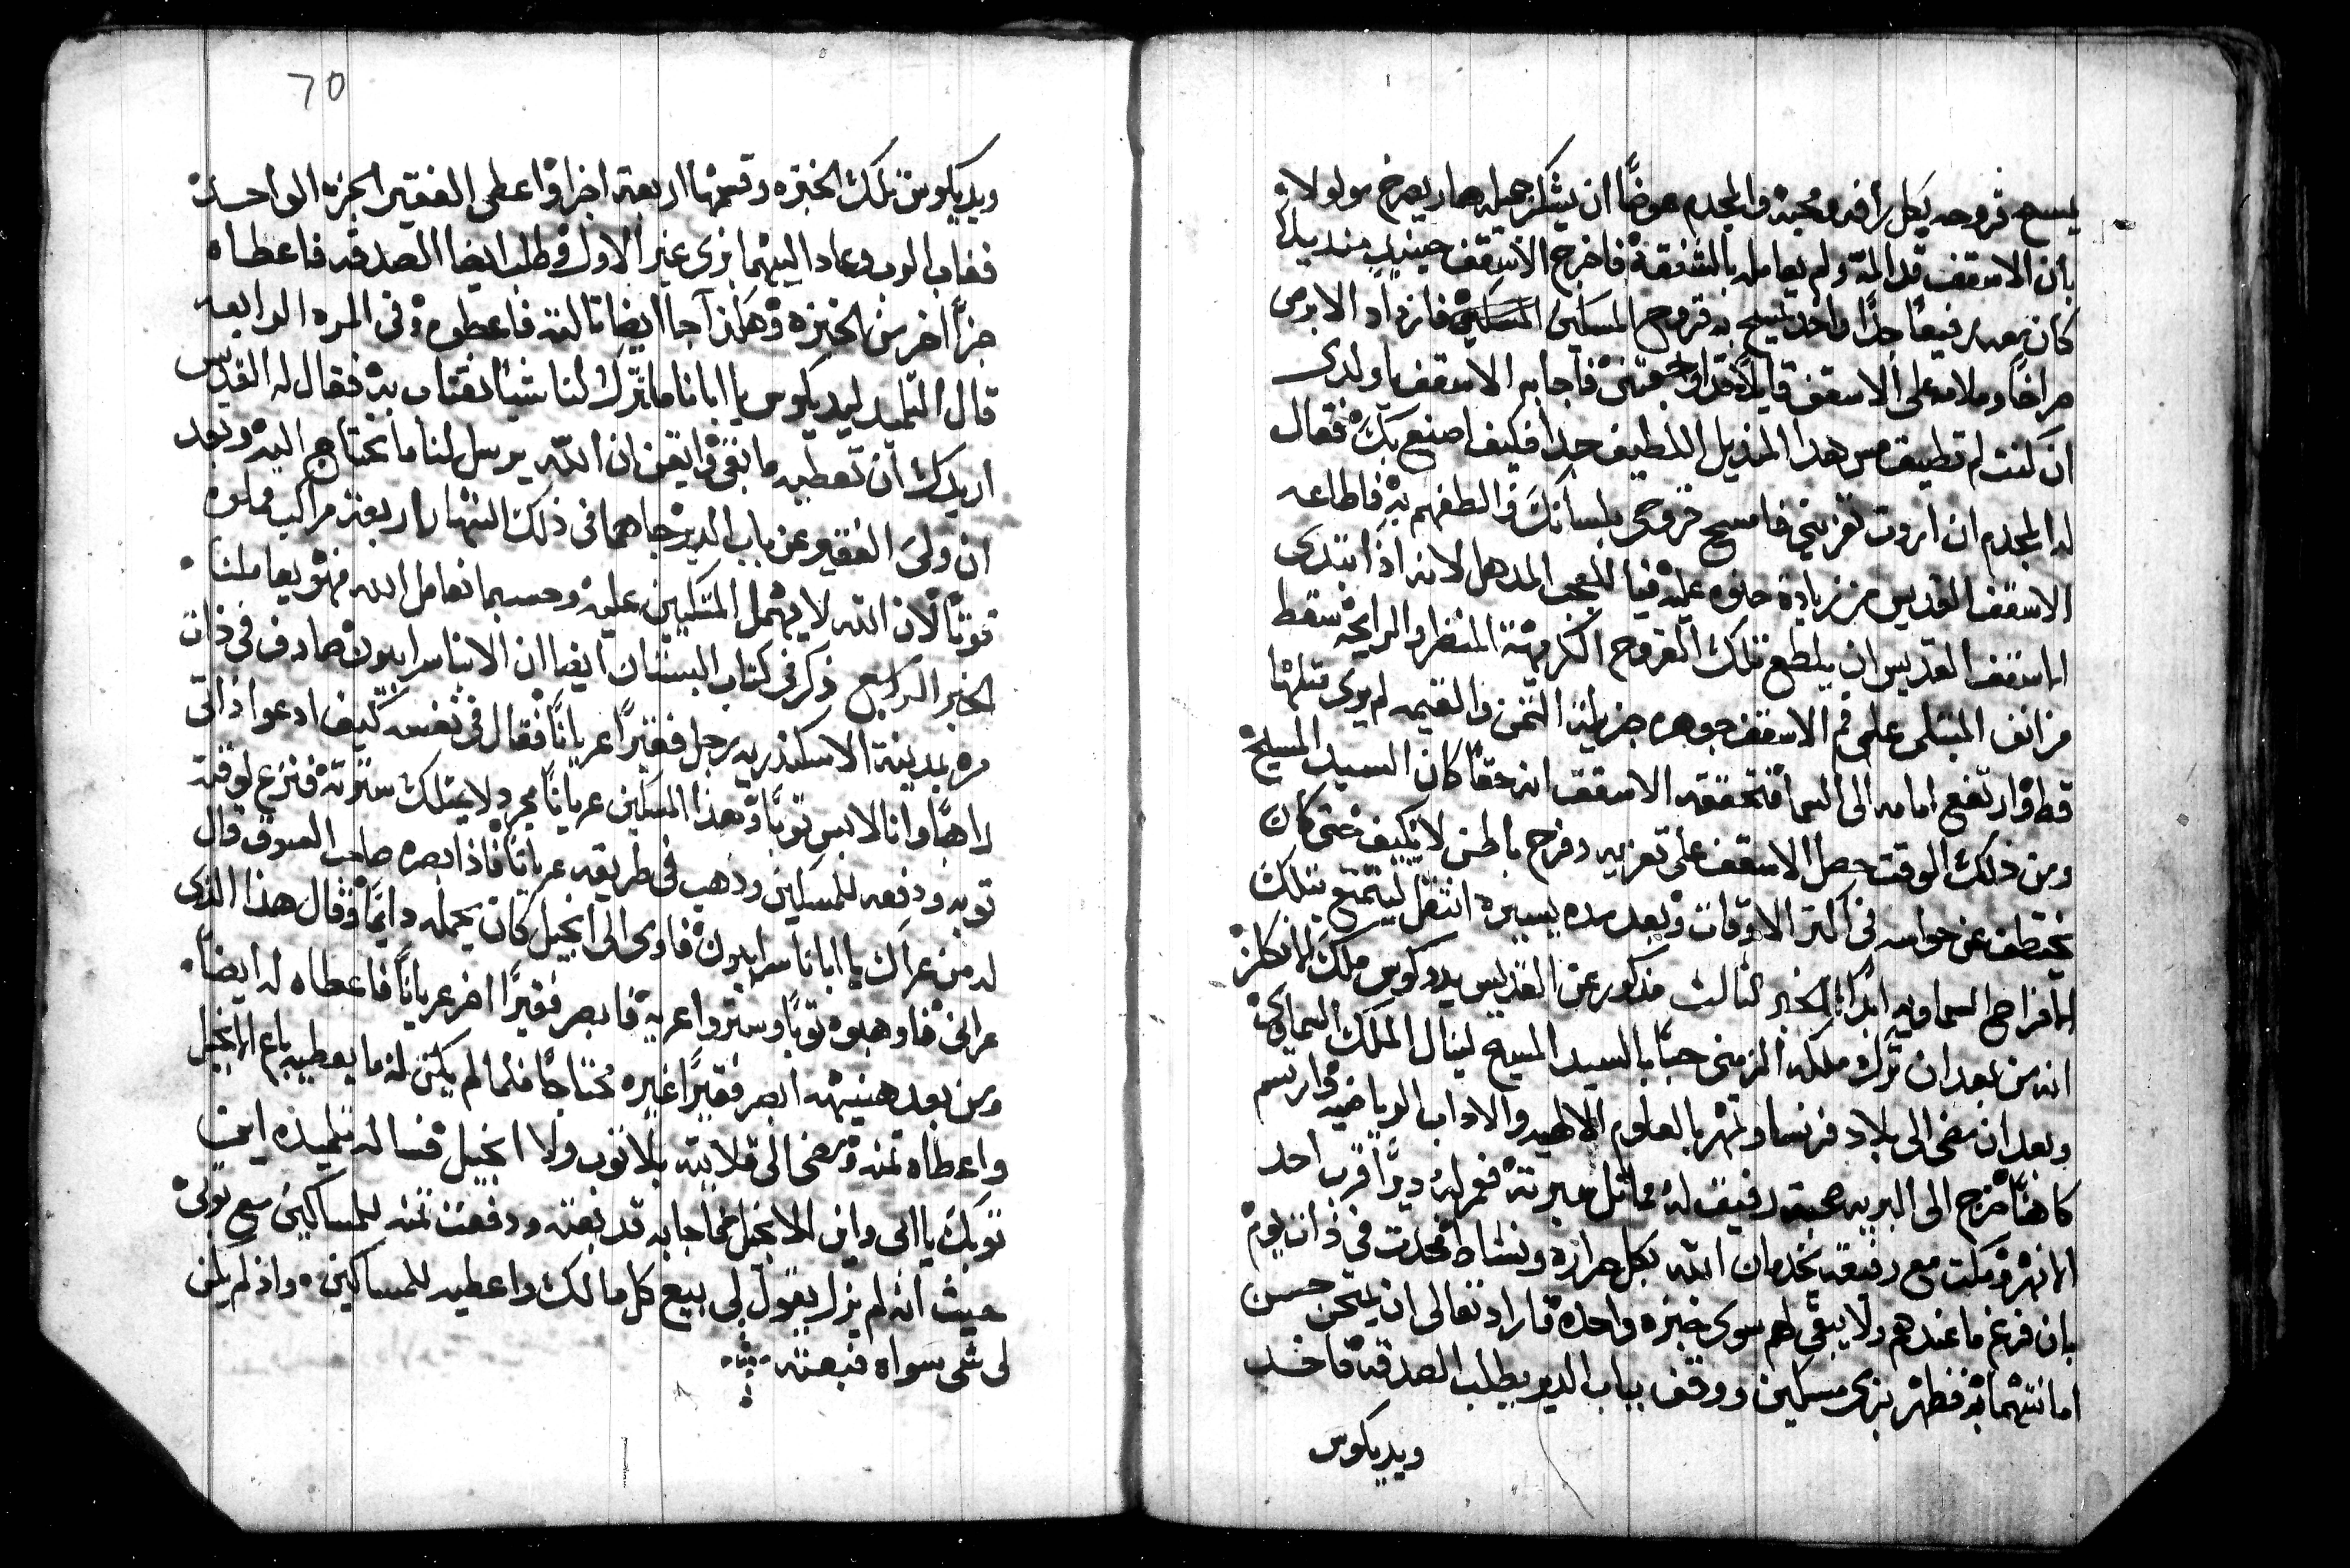 يمسح قروحه بكل رافه ومحبه والمجدم عوضاً ان يشكر جميله صار يصرخ ويولول
بان الاسقف قد المه ولم يعامله بالشفقة فاخرج الاسقف حينيدٍ منديلاً
كان معه رفيعاً جداً واخد يمسح به قروح المسكين فازداد الابرص
صراخاً وملامه على الاسقف قايلاً قد اوجعتني فاجابه الاسقف يا ولدي
ان كنت لم تطيق مس هدا المنديل اللطيف جداً فكيف اصنع بك فقال
له المجدم ان اردت تعزيني فامسح قروحي بلسانك والطفهم به فاطاعه
الاسقف القديس من زيادة حنوه عليه فيا للعجب المدهل لانه اذ ابتدى
الاسقف القديس ان يلطع تلك القروح الكريهة المنظر والرايحه سقط
من انف المبتلى على فم الاسقف جوهره جزيلة الثمن والقيمه لم يرى مثلها
قط وارتفع امامه الى السما فتحققه الاسقف انه حقاً كان السيد المسيح
ومن ذلك الوقت حصل الاسقف على تعزيه وفرح باطن لا يكيف حتى كان
يختطف عن حواسه في اكتر الاوقات وبعد مده يسيره انتقل ليتمتع بتلك
الافراح السماويه ابداً الخبر الثالث مذكور عن القديس يدوكوس ملك الانكلز
انه من بعد ان ترك ملكه الزمني حباً بالسيد المسيح لينال الملك السماوي
وبعد ان مضى الى بلاد فرنسا وتمهر بالعلوم الالهيه والاداب الرياضيه وارتسم
كاهناً خرج الى البريه صحبة رفيق له مماتل سيرته فعمر له ديراً قرب احد
الانهر ومكت مع رفيقه يخدمان الله بكل حراره ونشاط فحدث في ذات يوم
بان فرغ ما عندهم ولا يبقى لهم سوى خبزه واحده فاراد تعالى ان يمتحن حسن
امانتهما به فظهر بزي مسكين ووقف بباب الدير يطلب الصدقه فاخد
ويديكوس
70
ويديكوس تلك الخبزه وقسمها اربعة اجزا واعطى الفقير الجزء الواحد
فغاب الرب وعاد اليهما بزي غير الاول وطلب ايضا الصدقه فاعطاه
جزاً اخر من الخبزه وهكذا جا ايضا تالته فاعطوه وفي المره الرابعه
قال التلميد ليديكوس يا ابانا ما تترك لنا شيا نقتات به فقال له القديس
اريدك ان تعطيه ما بقي وايقن ان الله يرسل لنا ما نحتاج اليه وبعد
ان ولى الفقير عن باب الدير جاهما في ذلك النهار اربعة مراكب مملوه
قوتاً لان الله لا يهمل المتكلين عليه وحسبما نعامل الله فهو يعاملنا
الخبر الرابع ذكر في كتاب البستان ايضا ان الانبا سرابيون صادف في ذات
مره بمدينة الاسكندريه رجل فقيراً عرياناً فقال في نفسه كيف ادعوا ذاتي
راهباً وانا لابس توباً وهذا المسكين عرياناً مجرد لا يمتلك سترته فنزع لوقته
توبه ودفعه للمسكين وذهب في طريقه عرياناً فاذ ابصره صاحب المعروف قال
له من عراك يا ابانا سرابيون فاوى الى انجيل كان يحمله دايماً وقال هذا الذي
عراني فاوهبوه توباً وستروا عريه فابصر فقيراً اخر عرياناً فاعطاه له ايضاً
ومن بعد هنيهه ابصر فقيراً غيره محتاجاً فلما لم يكن له ما يعطيه باع الانجيل
واعطاه تمنه ومضى الى قلايته بلا توب ولا انجيل فساله تلميذه اين
توبك يا ابي واين الانجيل فاجابه قد بعته ودفعت تمنه للمساكين
حيث انه لم يزل يقول لي بيع كل ما لك واعطيه للمساكين واذ لم يكن
لي شي سواه فبعته